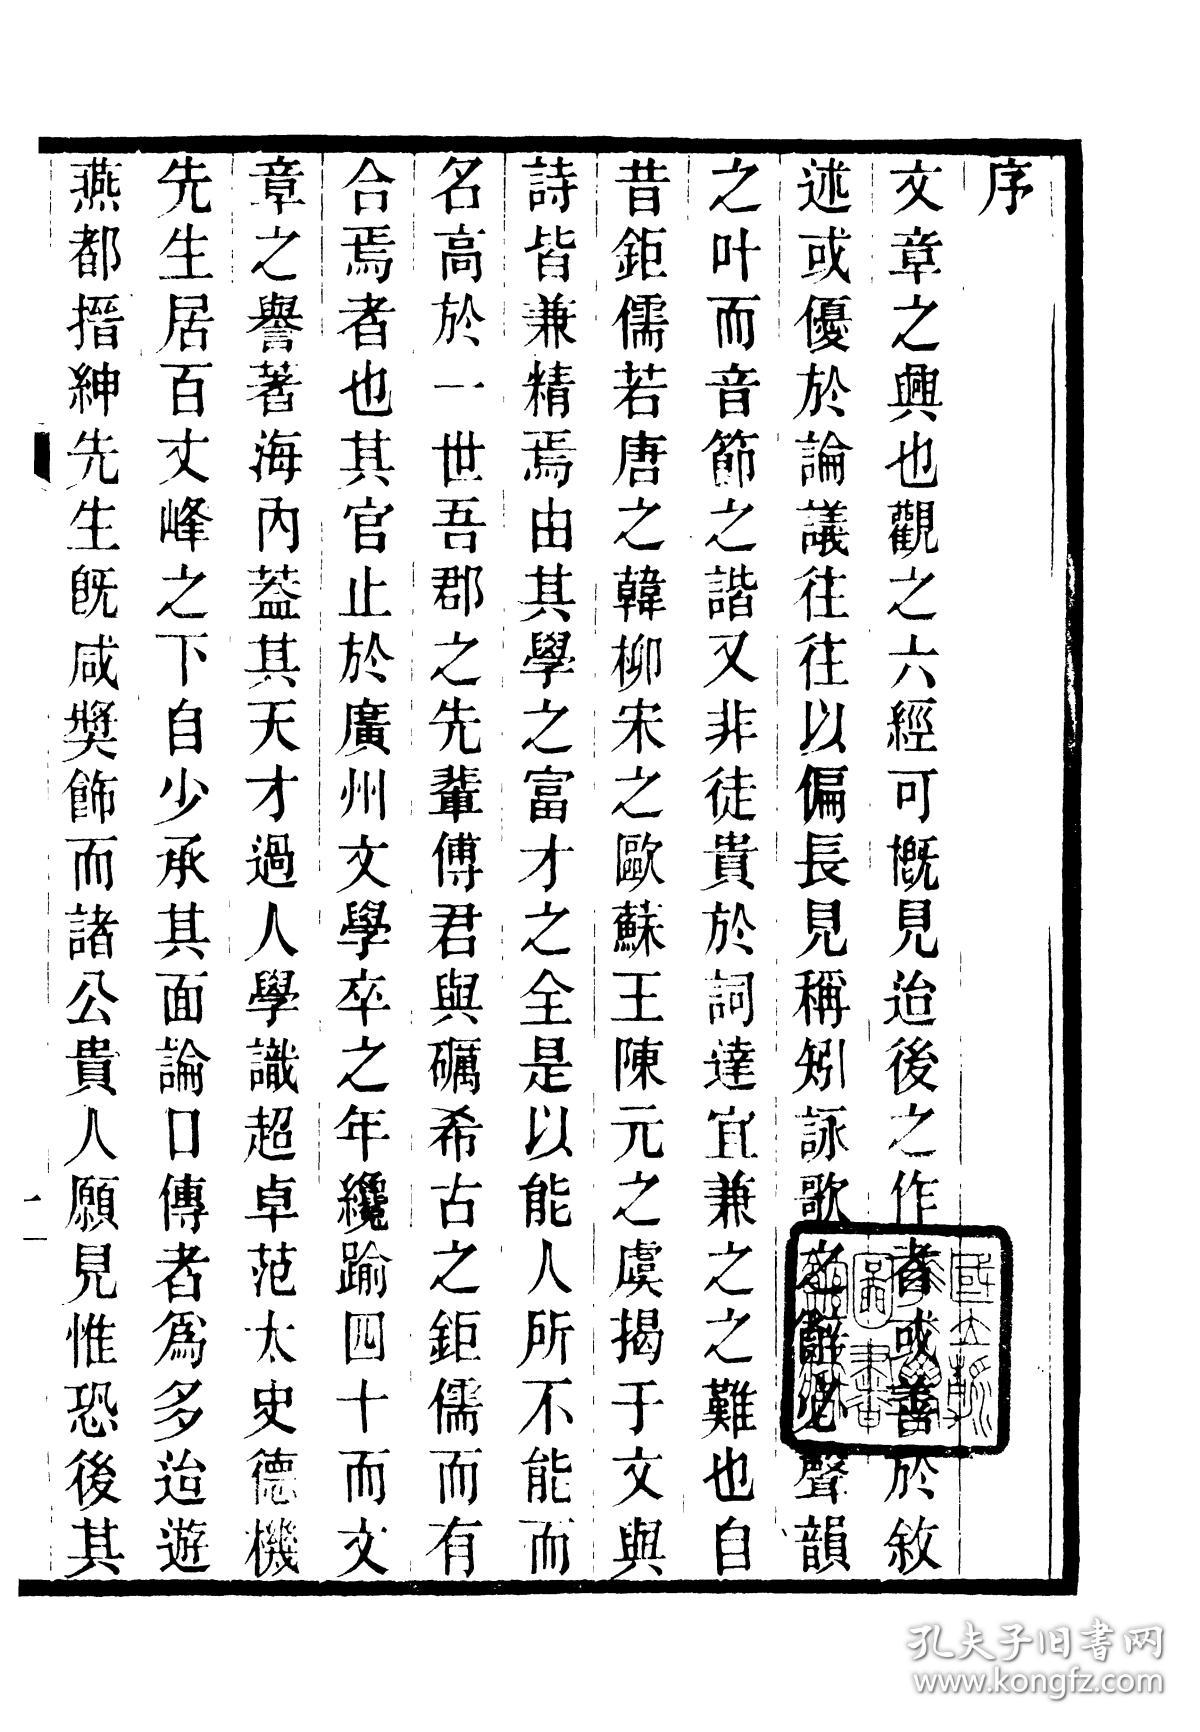 序
文章之興也觀之六經可慨見迨後之作者或善於敘
述或優於論議往往以偏長見稱矧詠歌之辭必聲韻
之叶而音節之諧又非徒貴於詞達宜兼之之難也自
昔鉅儒若唐之韓柳宋之歐蘇王陳元之虞揭于文與
詩皆兼精焉由其學之富才之全是以能人所不能而
名高於一世吾郡之先輩傅君與礪希古之鉅儒而有
合焉者也其官止於廣州文學卒之年纔踰四十而文
章之譽著海內葢其天才過人學識超卓范太史德機
先生居百丈峰之下自少承其面論口傳者為多迨遊
燕都搢紳先生旣咸獎飾而諸公貴人願見惟恐後其
一
國立北平圖書館
孔夫子旧书网
www.kongfz.com